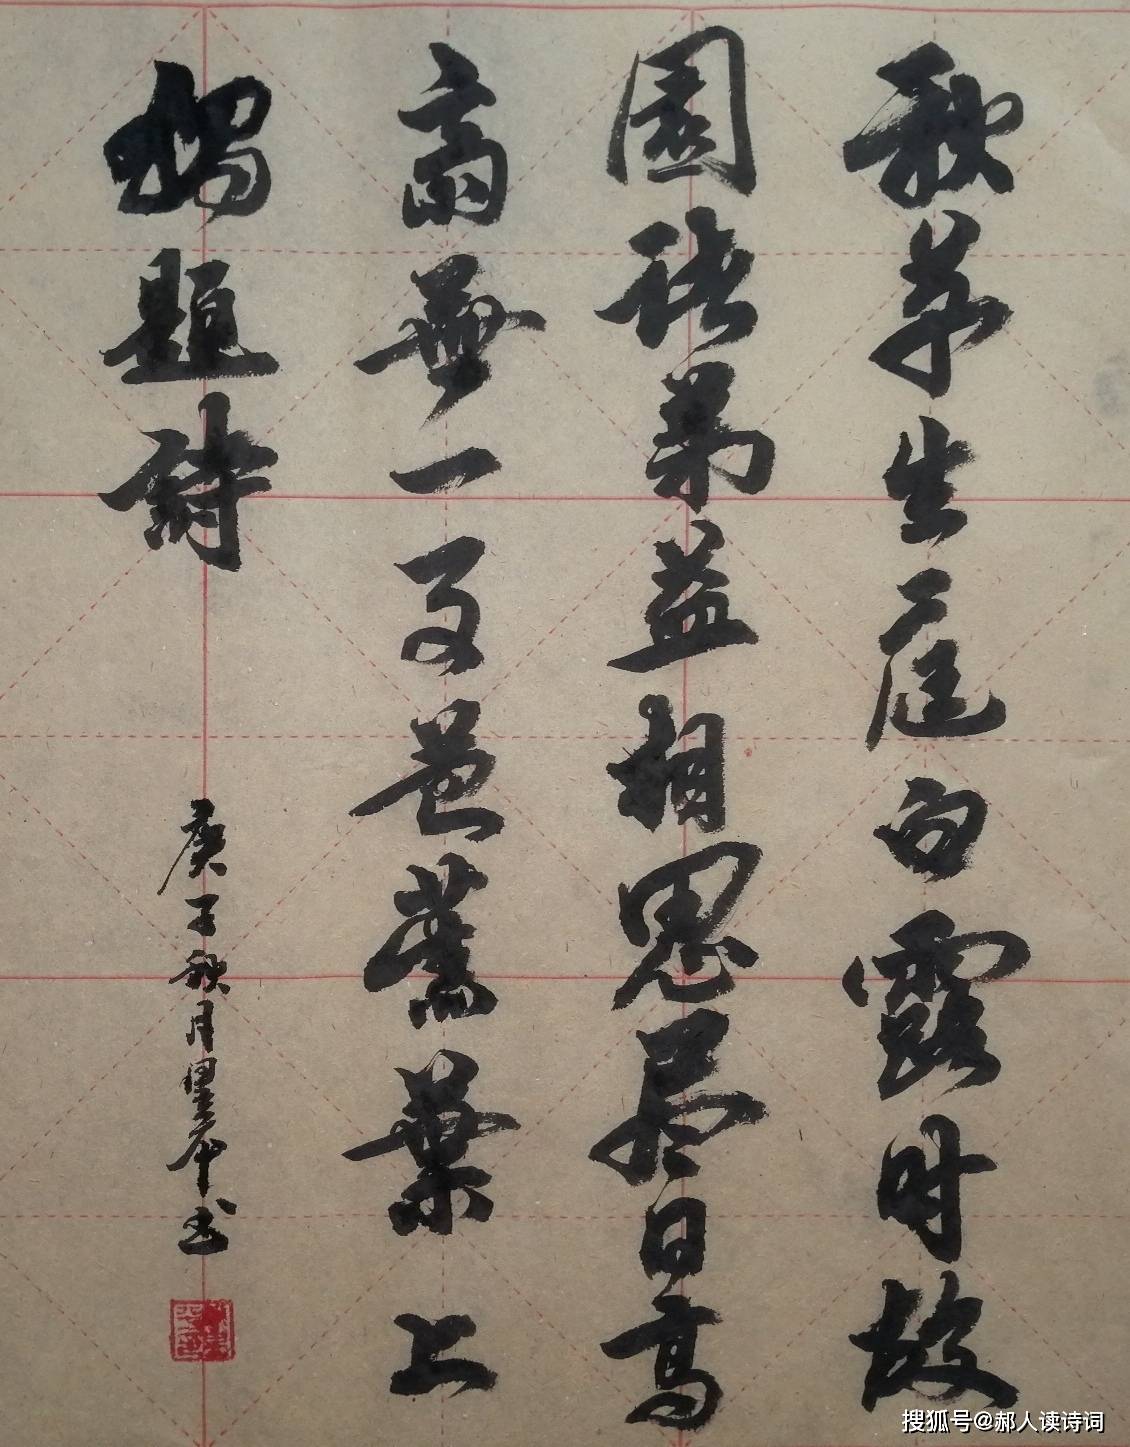 秋草生庭白露时故
園诸弟益相思尽日高
斋無一事芭蕉葉上
獨題詩
庚子秋月墨书
搜狐号@郝人读诗词